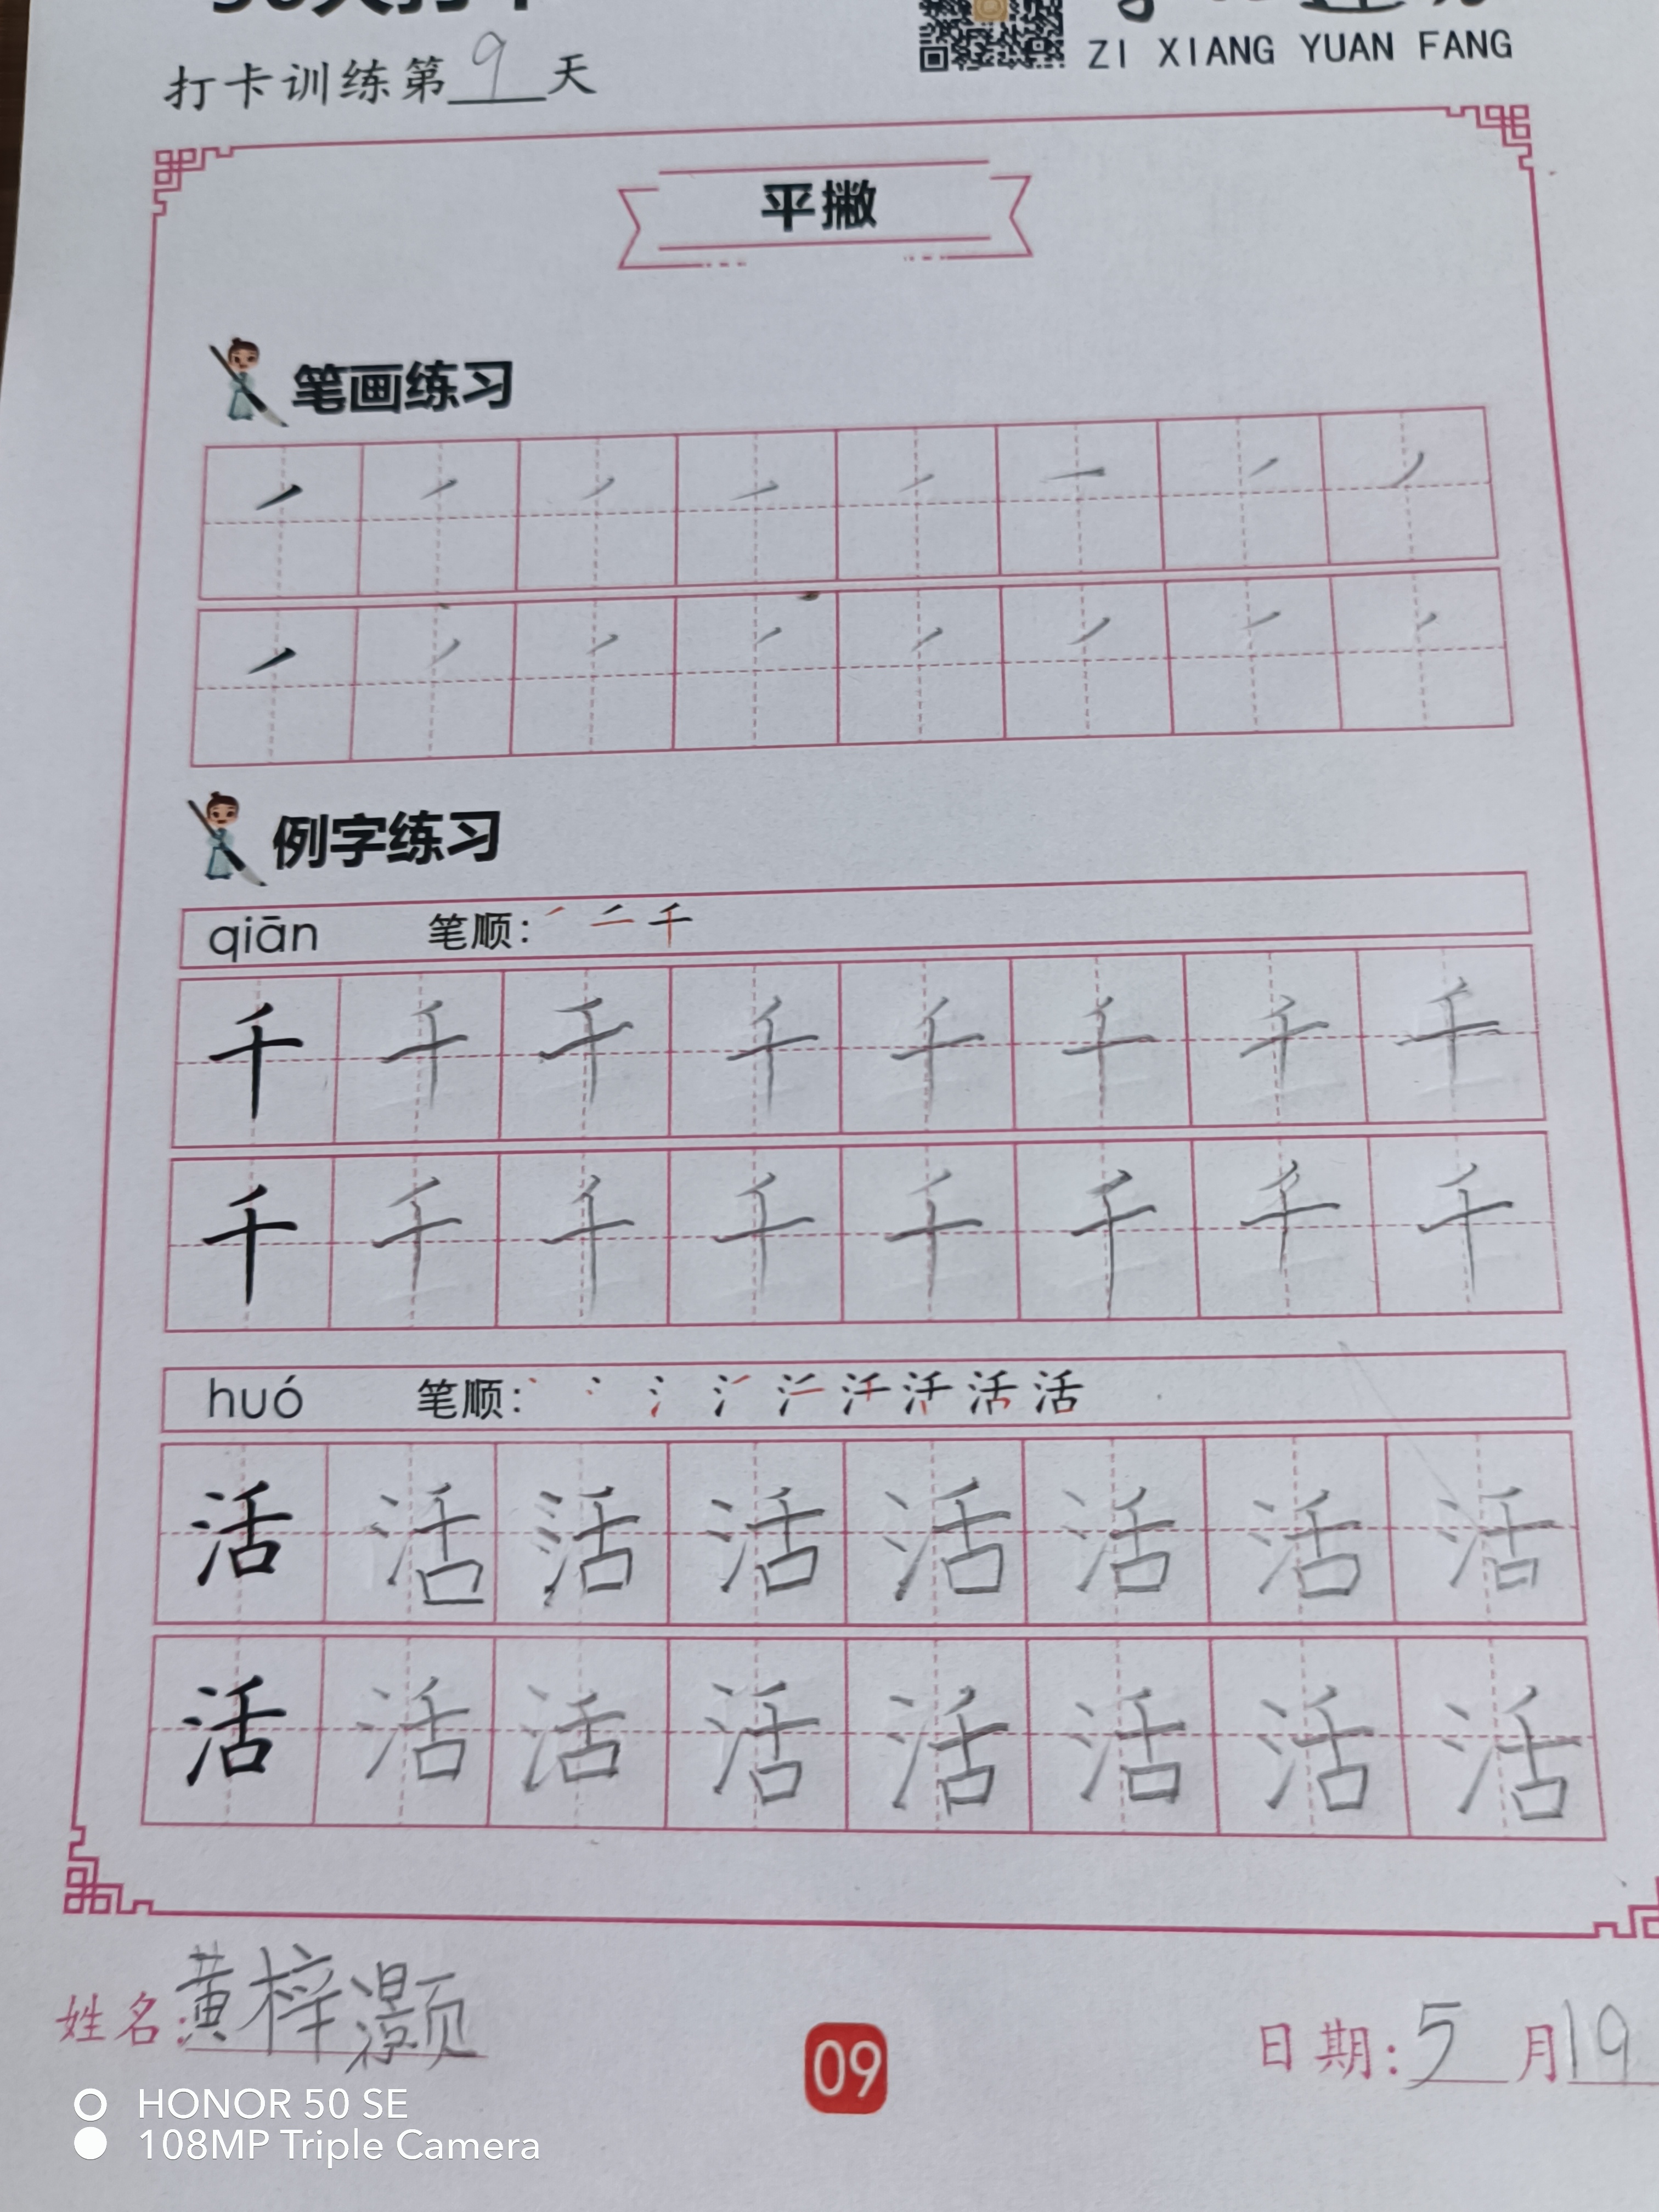 打卡训练第9天
ZI XIANG YUAN FANG
平撇
笔画练习
例字练习
qiān 笔顺:
千 千 千 千 千 千 千 千
千 千 千 千 千 千 千 千
huó 笔顺: 活
活 活 活 活 活 活 活 活
活 活 活 活 活 活 活 活
姓名:黄梓灏
09
日期:5月19
HONOR 50 SE
108MP Triple Camera